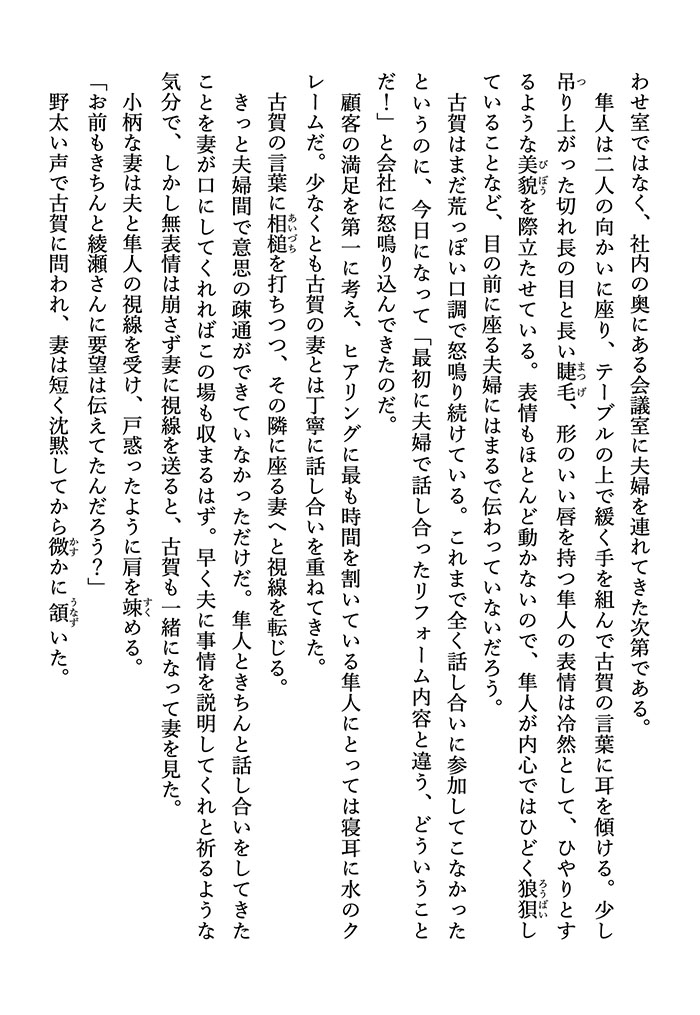 わせ室ではなく、社内の奥にある会議室に夫婦を連れてきた次第である。
隼人は二人の向かいに座り、テーブルの上で緩く手を組んで古賀の言葉に耳を傾ける。少し
吊り上がった切れ長の目と長い睫毛、形のいい唇を持つ隼人の表情は冷然として、ひやりとす
るような美貌を際立たせている。表情もほとんど動かないので、隼人が内心ではひどく狼狽し
ていることなど、目の前に座る夫婦にはまるで伝わっていないだろう。
古賀はまだ荒っぽい口調で怒鳴り続けている。これまで全く話し合いに参加してこなかった
というのに、今日になって「最初に夫婦で話し合ったリフォーム内容と違う、どういうこと
だ！」と会社に怒鳴り込んできたのだ。
顧客の満足を第一に考え、ヒアリングに最も時間を割いている隼人にとっては寝耳に水のク
レームだ。少なくとも古賀の妻とは丁寧に話し合いを重ねてきた。
古賀の言葉に相槌を打ちつつ、その隣に座る妻へと視線を転じる。
きっと夫婦間で意思の疎通ができていなかっただけだ。隼人ときちんと話し合いをしてきた
ことを妻が口にしてくれればこの場も収まるはず。早く夫に事情を説明してくれと祈るような
気分で、しかし無表情は崩さず妻に視線を送ると、古賀も一緒になって妻を見た。
小柄な妻は夫と隼人の視線を受け、戸惑ったように肩を竦める。
「お前もきちんと綾瀬さんに要望は伝えてたんだろう？」
野太い声で古賀に問われ、妻は短く沈黙してから微かに頷いた。